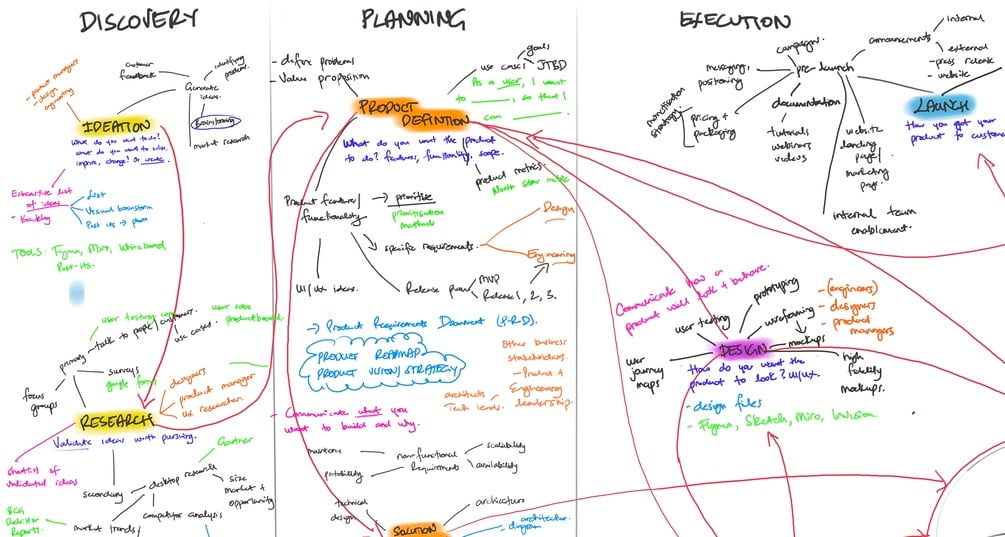 DISCOVERY
- product managers
- design
- engineering
customer
feedback
identifying
problems.
Generate
ideas.
Brainstorming
market research
IDEATION
What do you want to do?
what do you want to solve,
improve, change? Or create.
Exhaustive list
of ideas
- Backlog
- List
- Visual brainstorm
- Post its → photo
TOOLS: Figma, Miro, Whiteboard,
Post-its.
user testing
user voice
productboard.
primary
talk to people/customers.
use cases.
surveys
google forms
focus
groups
- designers
- product manager
- ux researcher
RESEARCH
Validate ideas worth pursuing.
Gartner
shortlist of
validated ideas
secondary
desktop research
size
market +
opportunity
competitor analysis
market trends/
BCG
Deloitte
Reports.
PLANNING
- define problems
- Value proposition
use cases
goals
JTBD
As a user, I want
to ____, so that I
can ____.
PRODUCT
DEFINITION
What do you want the product
to do? features, functionality, scope.
product metrics.
North star metric
Product features/
functionality
→ prioritise
prioritisation
methods
specific requirements.
Design
Engineering
UI/UX ideas.
Release plan
MVP
Release 1, 2, 3.
→ Product Requirements Document (P-R-D).
PRODUCT ROADMAP
PRODUCT VISION/STRATEGY
Other business
stakeholders.
- Product +
Engineering
leadership.
architects
Tech leads.
- Communicate what you
want to build and why.
non-functional
Requirements
scalability
availability
portability
technical
design
architecture
SOLUTION
- architecture
diagram
EXECUTION
campaigns.
messaging,
positioning
pre-launch
announcements
internal
external
- press release
- website
monetisation
strategy
pricing +
packaging
documentation
tutorials
webinars
videos
website
landing
page/
marketing
page.
internal team
enablement.
LAUNCH
How you get your
product to customers
Communicate how a
product will look + behave.
prototyping
user testing
wireframing
mockups
- (engineers)
- designers
- product
managers
DESIGN
user
journey
maps
high
fidelity
mockups.
How do you want the
product to look? UI/UX.
- design files
- Figma, Sketch, Miro, Invision.